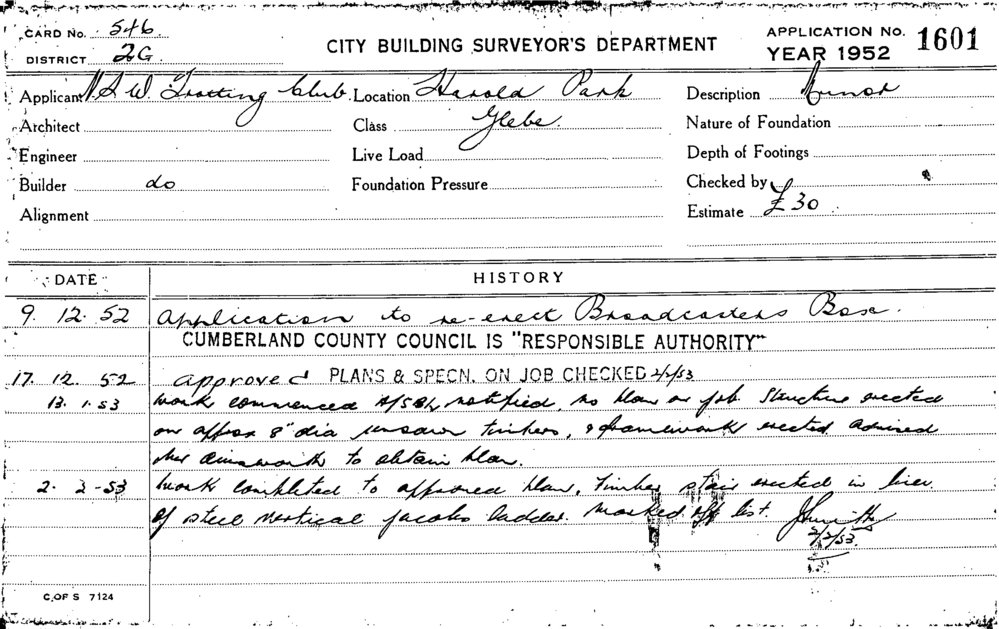 CARD No. 546
DISTRICT 2G
CITY BUILDING SURVEYOR'S DEPARTMENT
APPLICATION No. 1601
YEAR 1952
Applicant N.S.W. Trotting Club. Location Harold Park Description Minor
Architect Class Glebe. Nature of Foundation
Engineer Live Load Depth of Footings
Builder do Foundation Pressure Checked by
Alignment Estimate £30
DATE HISTORY
9. 12. 52 Application to re-erect Broadcasters Box.
CUMBERLAND COUNTY COUNCIL IS "RESPONSIBLE AUTHORITY"
17. 12. 52 approved PLANS & SPECN. ON JOB CHECKED 2/2/53
13. 1. 53 Work commenced notified, no plan on job. Structure erected
on approx 8" dia unsawn timbers, & framework erected advised
Mr Ainsworth to obtain plan.
2. 2-53 Work completed to approved plan, Timber stair erected in lieu
of steel vertical jacobs ladder. Marked off list.
2/2/53.
C. OF S 7124